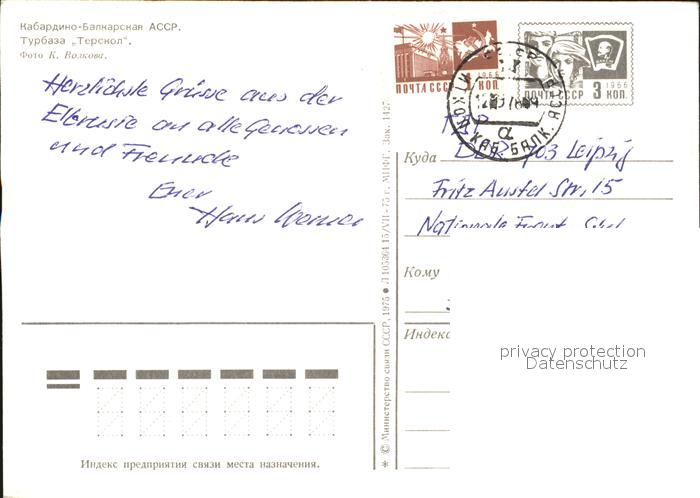 Кабардино-Балкарская АССР.
Турбаза „Терскол".
Фото К. Волкова.
Herzlichste Grüsse aus der
Elbrusie an alle Genossen
und Freunde
Euer
Hans Werner
1966
ПОЧТА СССР 1 КОП.
1966
ПОЧТА СССР 3 КОП.
СССР
КАБ. БАЛК. АССР
а
Куда DDR 703 Leipzig
Fritz Austel Str. 15
Nationale Front
Кому
Индекс
© Министерство связи СССР, 1975 ● Л 105364 15/VII-75 г. МПФГ. Зак. 1427
Индекс предприятия связи места назначения.
privacy protection
Datenschutz